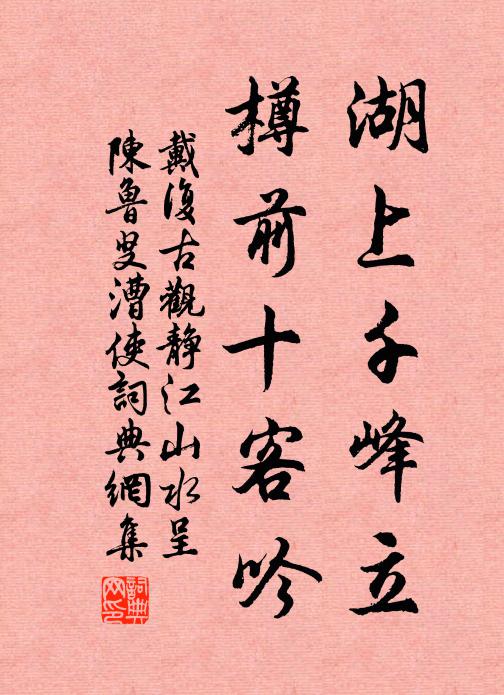 湖上千峰立
樽前十客吟
戴復古觀靜江山水呈
陳魯叟漕使詞典網集
詞典網印